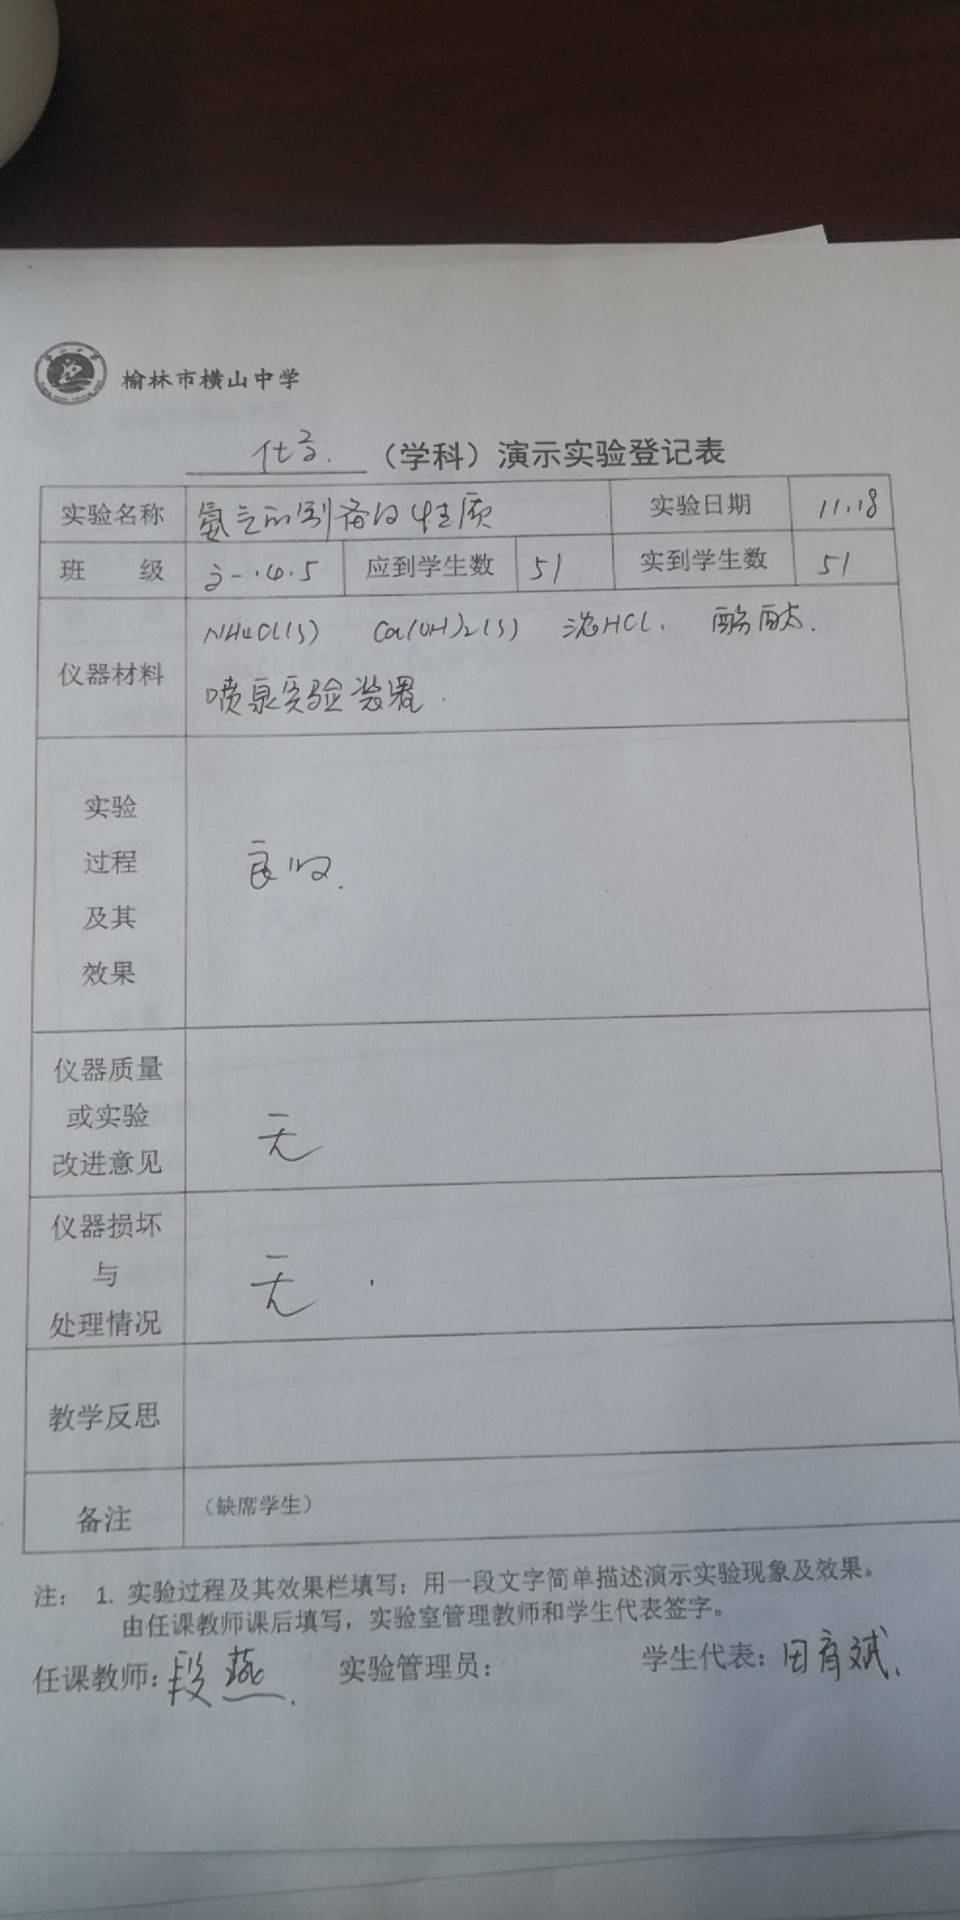 榆林市横山中学
化学.（学科）演示实验登记表
实验名称 氨气的制备的性质 实验日期 11.18
班 级 高一.4.5 应到学生数 51 实到学生数 51
仪器材料 NH4Cl(s) Ca(OH)2(s) 浓HCl. 酚酞.
喷泉实验装置.
实验
过程
及其
效果
良好.
仪器质量
或实验
改进意见
无
仪器损坏
与
处理情况
无
教学反思
备注 （缺席学生）
注： 1. 实验过程及其效果栏填写：用一段文字简单描述演示实验现象及效果。
由任课教师课后填写，实验室管理教师和学生代表签字。
任课教师：段燕. 实验管理员： 学生代表：田育斌.